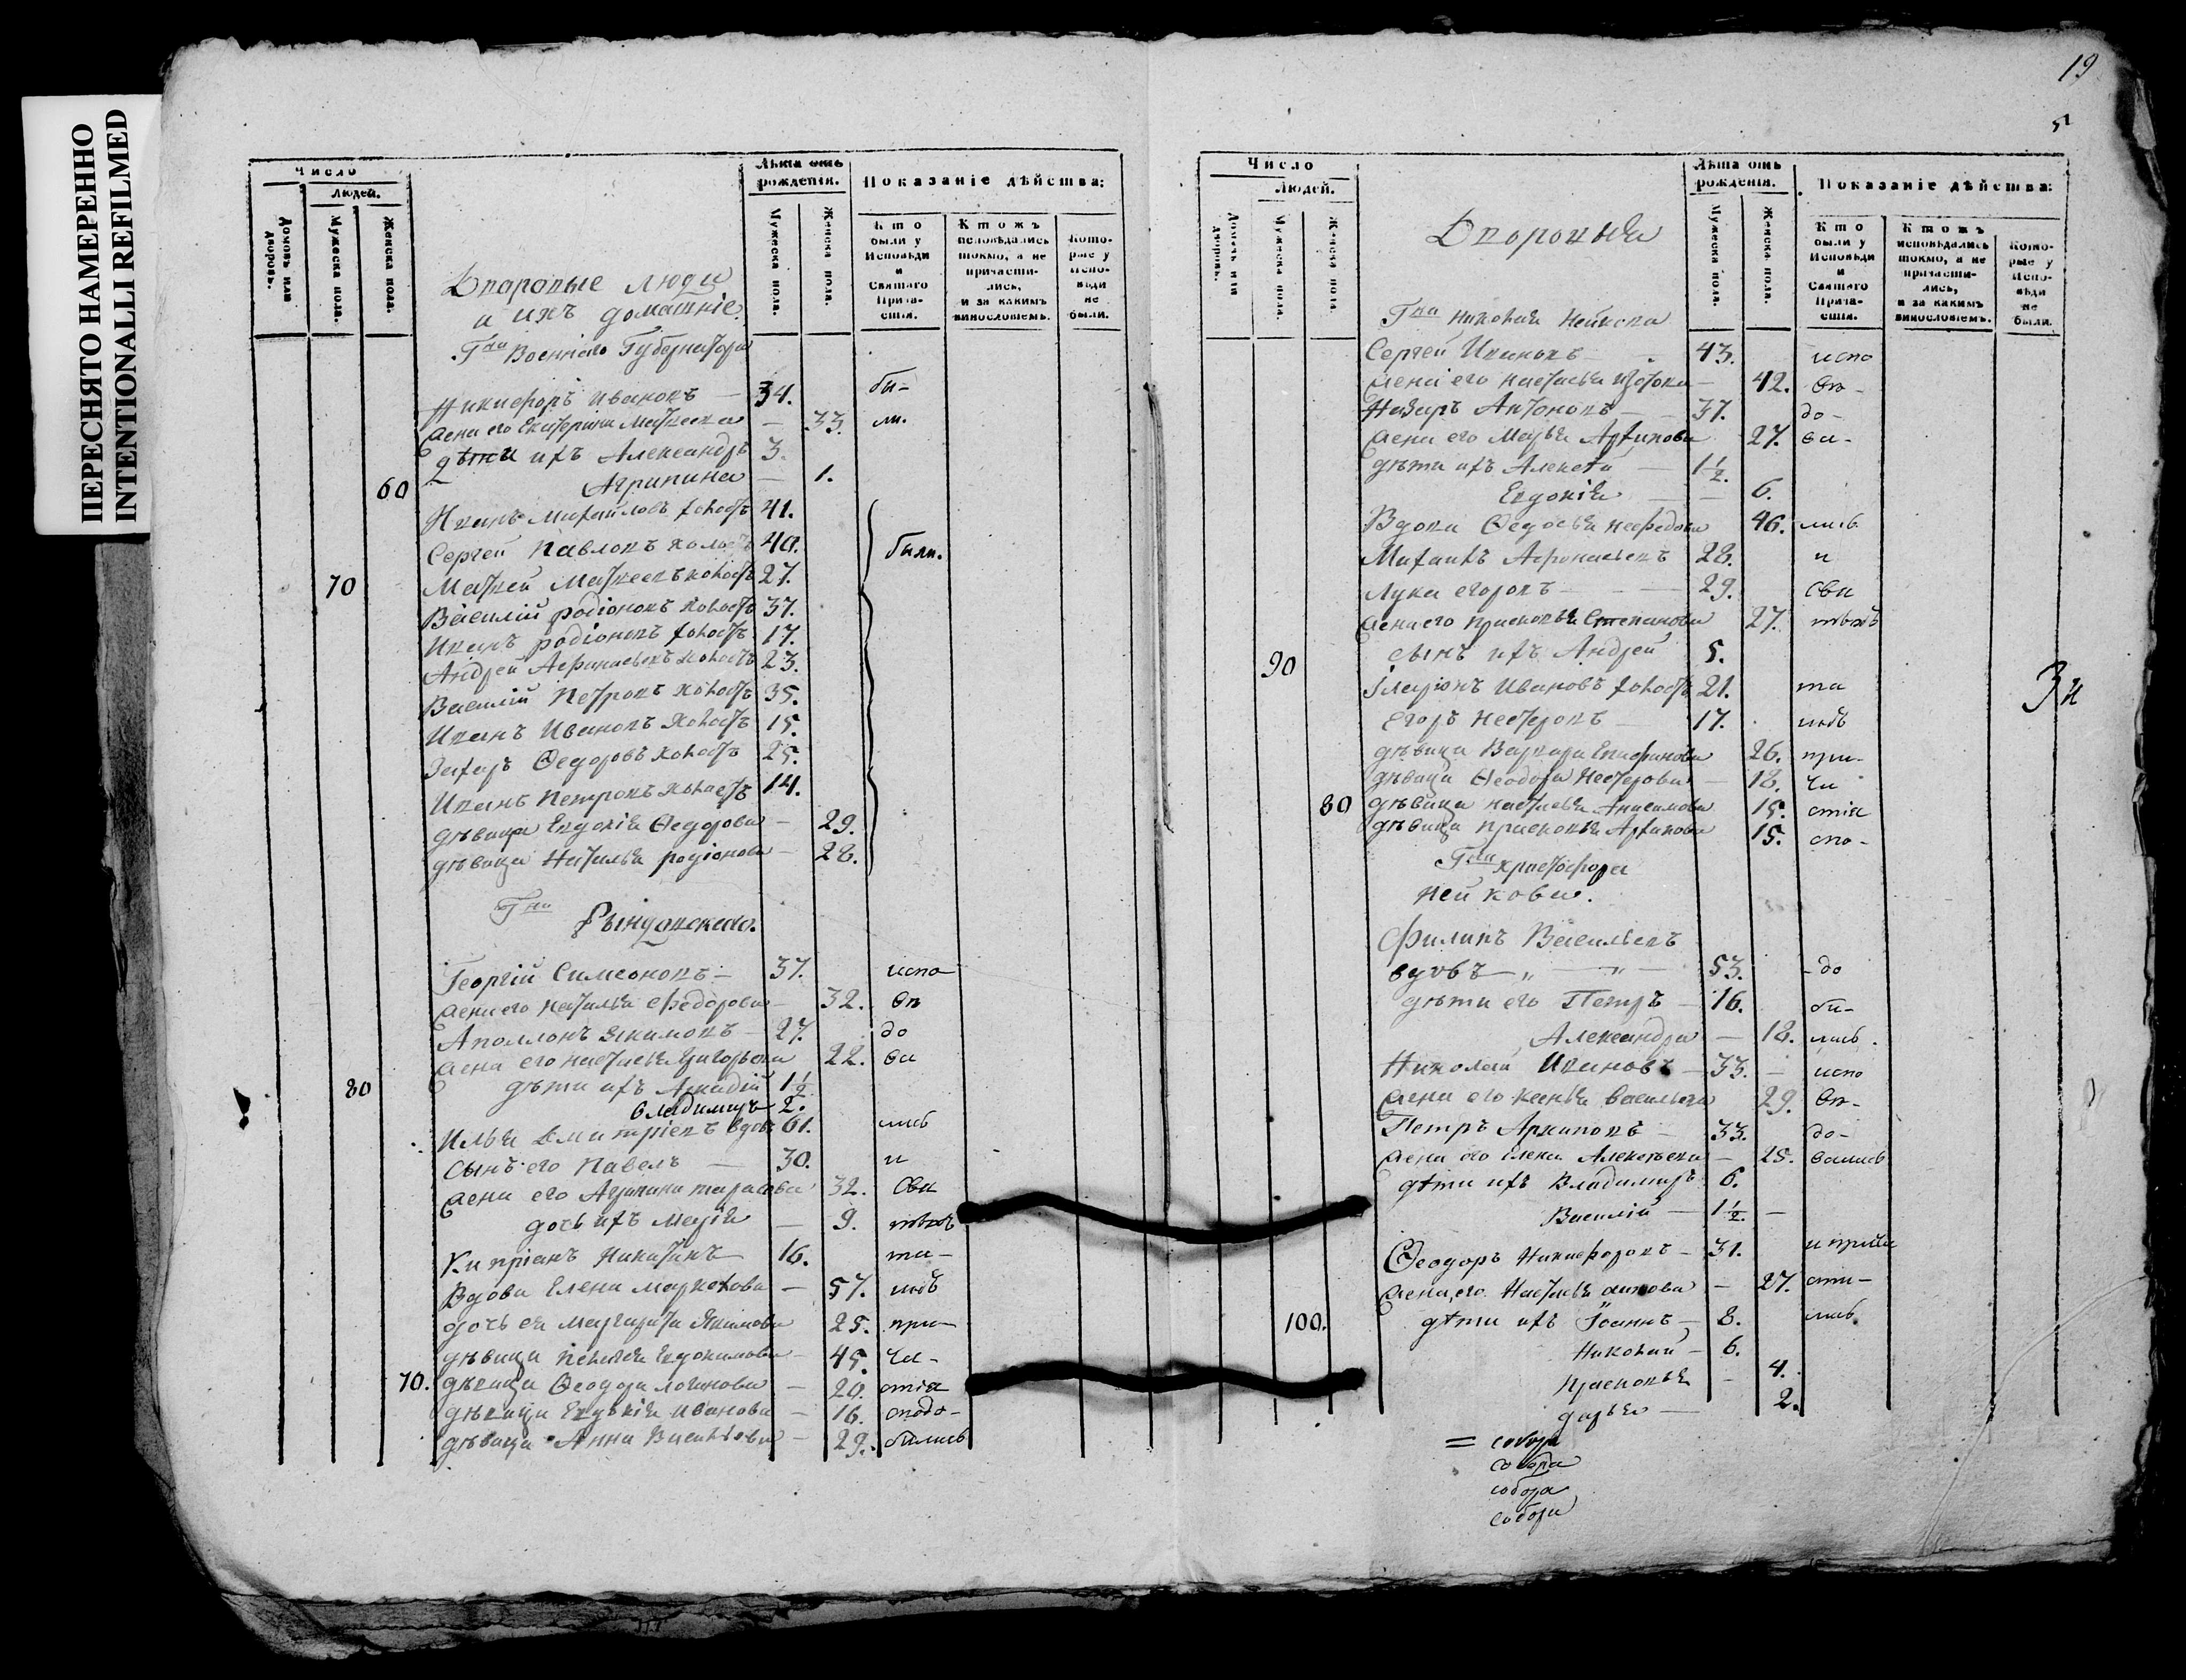 ПЕРЕСНЯТО НАМЕРЕННО
INTENTIONALLI REFILMED
19
5
Число
Людей.
Домовъ или дворовъ.
Мужеска пола.
Женска пола.
Дворовые люди
и ихъ домашніе.
Лѣта отъ рожденія.
Мужеска пола.
Женска пола.
Показаніе дѣйства:
Кто были у Исповѣди и Святаго Прича-стія.
Ктожъ исповѣдались токмо, а не причасти-лись, и за какимъ винословіемъ.
Кото-рые у Испо-вѣди не были.
Гна Военнаго Губернатора
Никифоръ Ивановъ — 34. бы-
жена его Екатерина Матвеева — 33. ли.
дѣти ихъ Александръ 3.
60 Агрипина — 1.
Иванъ Михайловъ холостъ 41.
Сергей Павловъ холостъ 40. были.
70 Матвей Матвеевъ холостъ 27.
Василій родіоновъ холостъ 37.
Иванъ родіоновъ холостъ 17.
Андрей Афанасьевъ холостъ 23.
Василій Петровъ холостъ 35.
Иванъ Ивановъ холостъ 15.
Захаръ Ѳедоровъ холостъ 25.
Иванъ Петровъ холостъ 14.
дѣвица Евдокія Ѳедорова — 29.
дѣвица Наталья родіонова — 28.
Гна
Рындовскаго.
Георгій Симеоновъ — 37. испо
жена его Наталья Федорова — 32. вѣ
Аполлонъ Якимовъ — 27. до
жена его настасья Григорьева 22. ва
80 дѣти ихъ Аркадій 1 1/2
Владимиръ 2.
Илья Дмитріевъ вдовъ 61. лись
сынъ его Павелъ — 30. и
жена его Агрипина тарасова 32. Свя
дочь ихъ Марія — 9. тыхъ
Кипріанъ Никитинъ — 16. та-
Вдова Елена маркокова — 57. инъ
дочь ея Маргарита Якимова 25. при-
дѣвица Пелагея Евдокимова — 45. ча-
70. дѣвица Ѳеодора логинова — 20. стія
дѣвица Евдокія Иванова — 16. сподо-
дѣвица Анна Васильева — 29. бились
Число
Людей.
Домовъ или дворовъ.
Мужеска пола.
Женска пола.
Дворовыя
Лѣта отъ рожденія.
Мужеска пола.
Женска пола.
Показаніе дѣйства:
Кто были у Исповѣди и Святаго Прича-стія.
Ктожъ исповѣдались токмо, а не причасти-лись, и за какимъ винословіемъ.
Кото-рые у Испо-вѣди не были.
Гна николая Нейкова
Сергей Ивановъ — 43. испо
жена его настасья — 42. вѣ-
Назаръ Антоновъ — 37. до-
жена его Марья Архипова 27. ва-
дѣти ихъ Алексей — 1 1/2.
Евдокія — 6.
Вдова Ѳедосья 46. лись
Михаилъ Афонасьевъ 28. и
Лука егоровъ — 29. Свя
жена его прасковья Степанова 27. тыхъ
90 сынъ ихъ Андрей 5.
Іларіонъ Ивановъ холостъ 21. та
Егоръ Нестеровъ — 17. инъ
дѣвица Варвара Епифанова 26. при-
дѣвица Ѳеодора Нестерова — 18. ча
80 дѣвица настасья Анисимова 15. стія
дѣвица прасковья Архипова 15. спо-
Гна христофора
Нейкова.
Филипъ Васильевъ
вдовъ — " — " — 53. -до
дѣти его Петръ — 16. би-
Александра — 18. лись.
Николай Ивановъ — 33. — испо
жена его ксенья васильева 29. вѣ-
Петръ Архиповъ — 33. до-
жена его елена Алексеева — 25. вались
дѣти ихъ Владимиръ 6.
Василій — 1 1/2. —
Ѳеодоръ Никифоровъ — 31. и прича
жена его Настасья — 27. сти-
100. дѣти ихъ Іоаннъ — 8. лись.
Николай — 6.
прасковья — 4.
дарья — 2.
= собора
собора
собора
собора